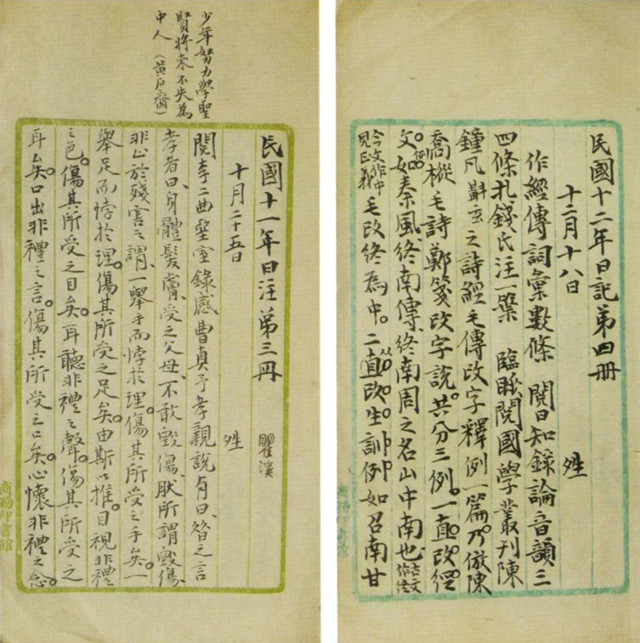 民國十二年日記第四冊
十二月十八日
作經傳詞彙數條 閱日知錄論音韻三
四條札錢氏注一 臨睡閱國學叢刊陳
鐘凡斠玄之詩經毛傳改字釋例一篇。乃倣陳
喬樅毛詩鄭箋改字說。共分三例。一直改經
文。如秦風。終南傳終南周之名山中南也。
今文作中見正義毛改終為中。二直改生訓。例如召南甘
少年努力學聖
賢將來不失為
中人(黃石齋)
民國十一年日注第三冊 瞿溪
十月二十五日
閱李二曲堊室錄感曹真予孝親說有曰、昝之言
孝者曰、身體髮膚、受之父母、不敢毀傷、肰所謂毀傷、
非止於殘害之謂、一舉手而悖於理。傷其所受之手矣。一
舉足而悖於理。傷其所受之足矣。由斯以推。目視非禮
之色。傷其所受之目矣。耳聽非禮之聲。傷其所受之
耳矣。口出非禮之言。傷其所受之口矣。心懷非禮之念。
商務印書館